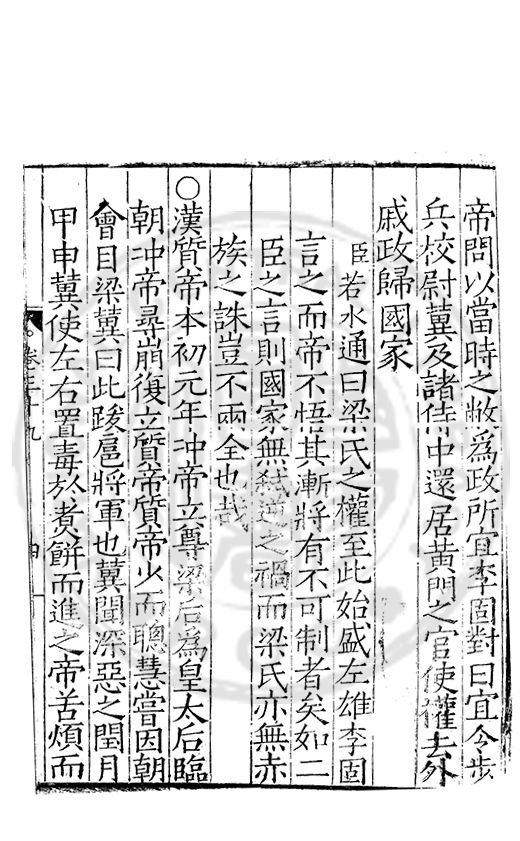 帝問以當時之敝爲政所宜李固對曰宜令步
兵校尉冀及諸侍中還居黃門之官使權去外
戚政歸國家
臣若水通曰梁氏之權至此始盛左雄李固
言之而帝不悟其漸將有不可制者矣如二
臣之言則國家無弑逆之禍而梁氏亦無赤
族之誅豈不兩全也哉
○漢質帝本初元年冲帝立尊梁后爲皇太后臨
朝冲帝尋崩復立質帝質帝少而聰慧嘗因朝
會目梁冀曰此跋扈將軍也冀聞深惡之閏月
甲申冀使左右置毒於煑餅而進之帝苦煩而
卷三十九
四